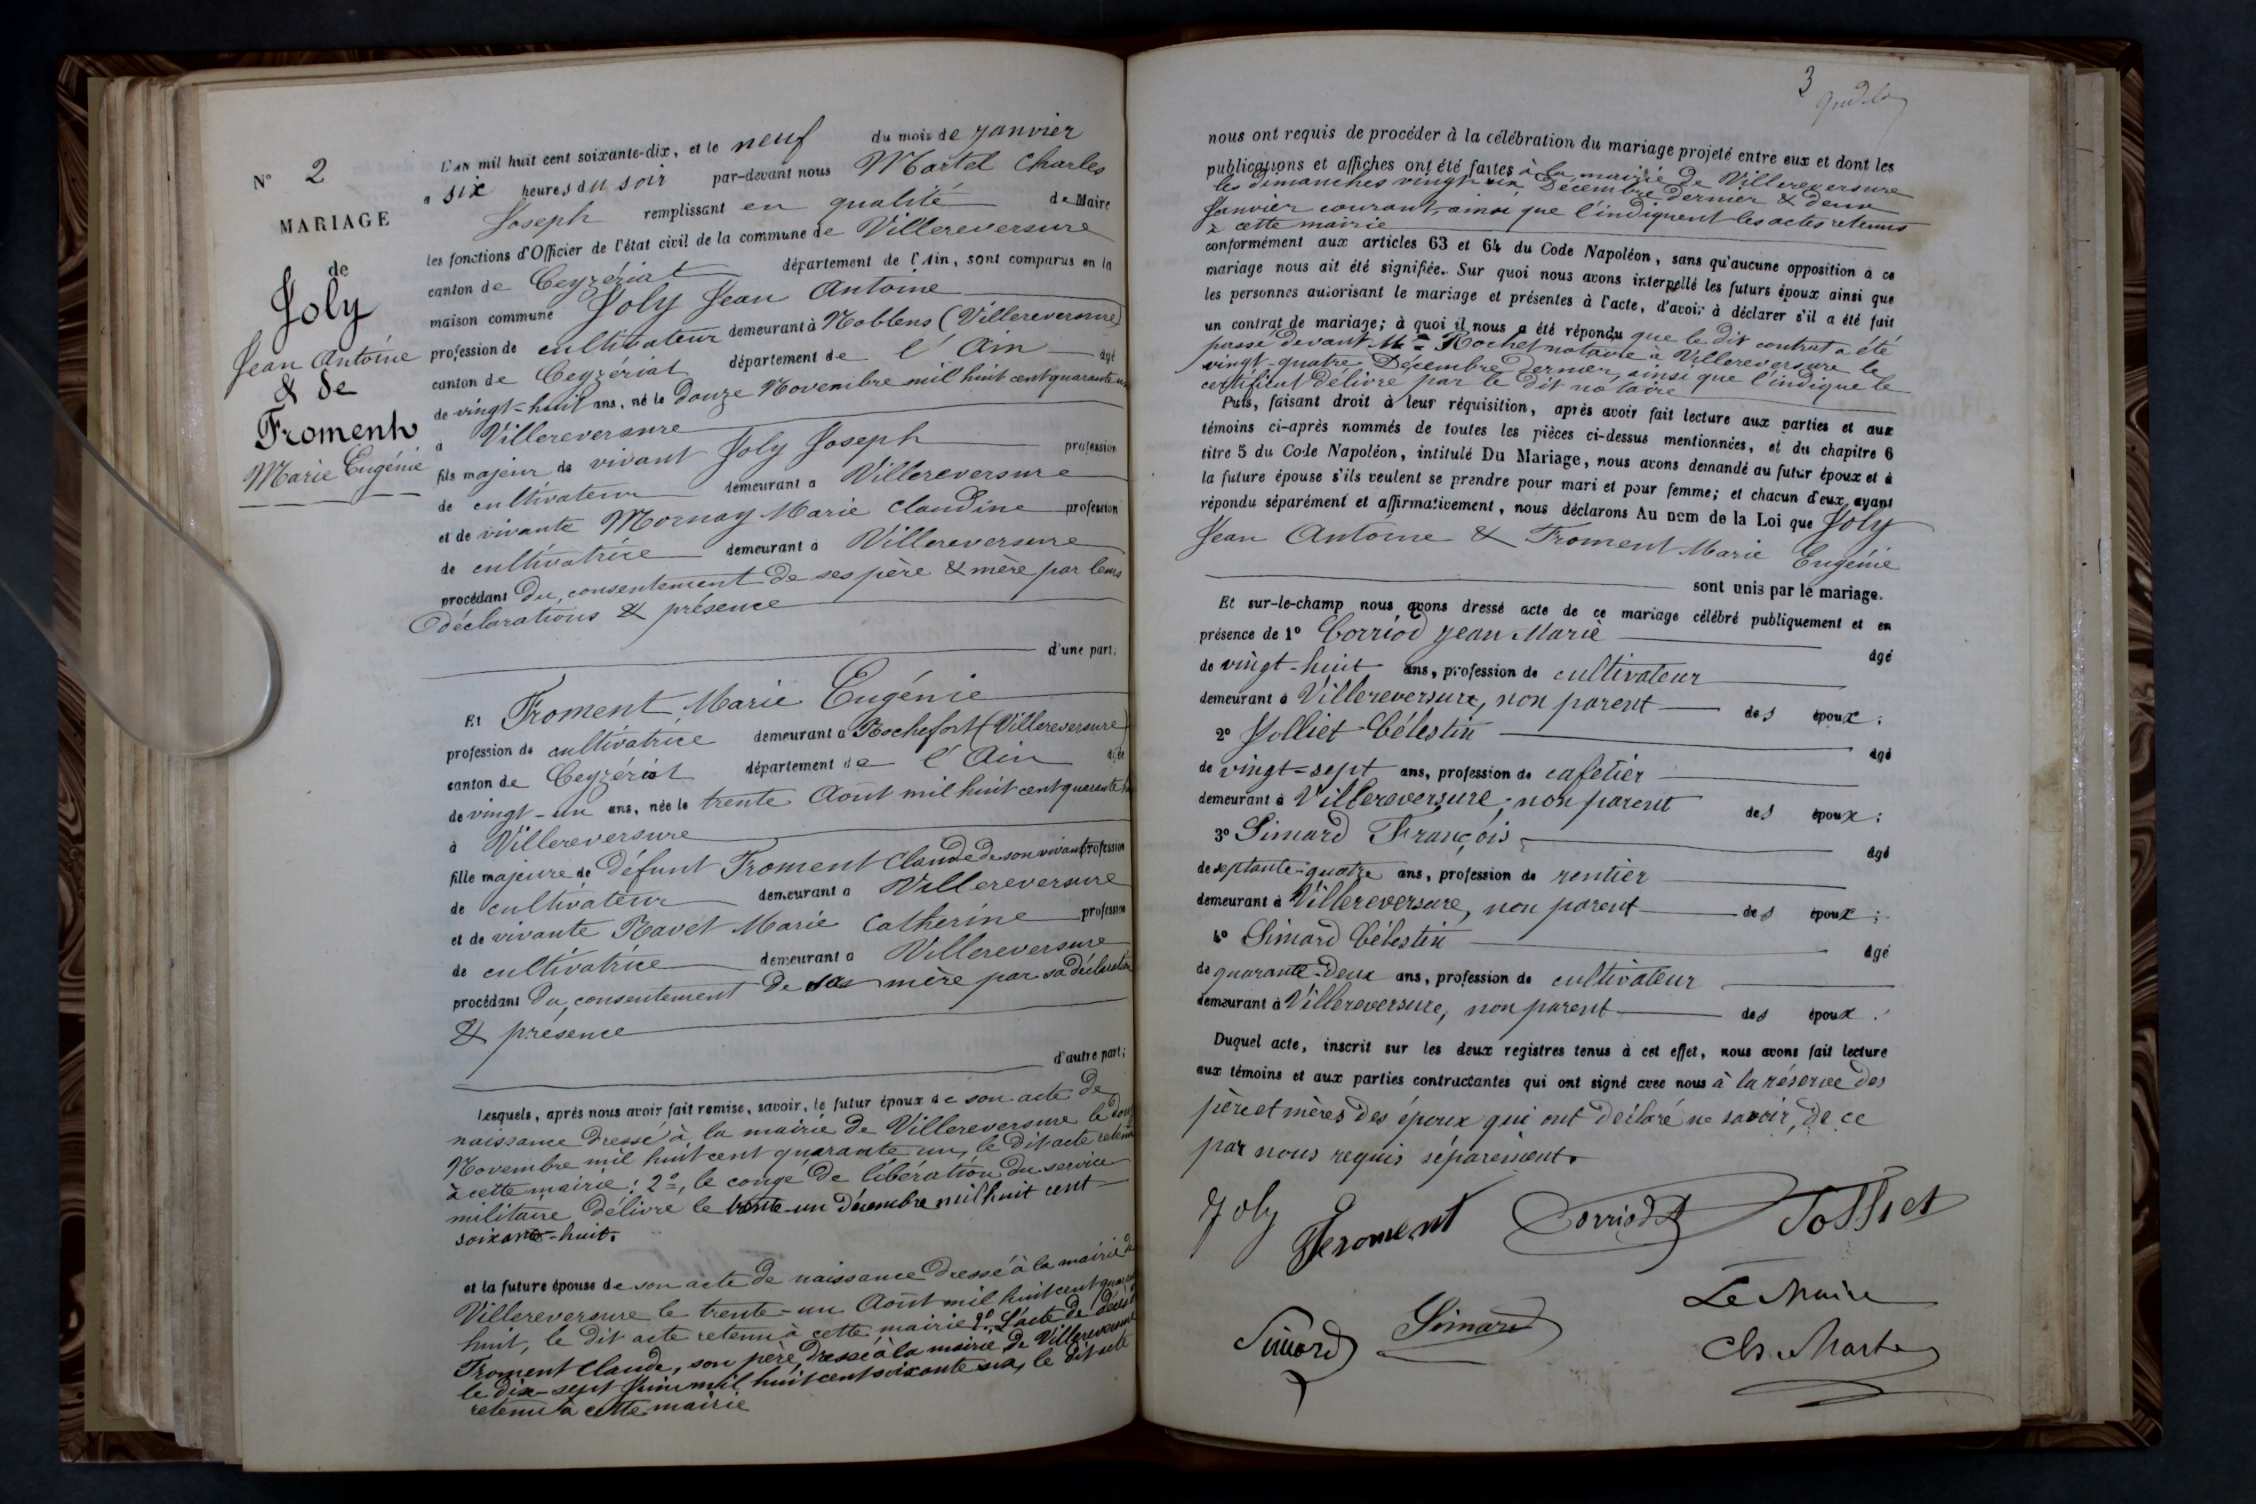 N° 2
MARIAGE
de
Joly
Jean Antoine
& de
Froment
Marie Eugénie
L'AN mil huit cent soixante-dix, et le neuf du mois de janvier
a six heures du soir par-devant nous Martel Charles
Joseph remplissant en qualité de Maire
les fonctions d'Officier de l'état civil de la commune de Villereversure
canton de Ceyzériat département de l'Ain, sont comparus en la
maison commune Joly Jean Antoine
profession de cultivateur demeurant à Noblens (Villereversure)
canton de Ceyzériat département de l'Ain âgé
de vingt-huit ans, né le douze Novembre mil huit cent quarante un
a Villereversure
fils majeur de vivant Joly Joseph profession
de cultivateur demeurant a Villereversure
et de vivante Mornay Marie Claudine profession
de cultivatrice demeurant a Villereversure
procédant du consentement de ses père & mère par leurs
déclarations & présence
d'une part;
Et Froment Marie Eugénie
profession de cultivatrice demeurant a Rochefort (Villereversure)
canton de Ceyzériat département de l'Ain âgée
de vingt-un ans, née le trente Août mil huit cent quarante
à Villereversure
fille majeure de défunt Froment Claude de son vivant profession
de cultivateur demeurant a Villereversure
et de vivante Ravet Marie Catherine profession
de cultivatrice demeurant a Villereversure
procédant du consentement de sa mère par sa déclaration
& présence
d'autre part;
Lesquels, après nous avoir fait remise, savoir, le futur époux de son acte de
naissance dressé à la mairie de Villereversure le douze
Novembre mil huit cent quarante un, le dit acte retenu
à cette mairie; 2°, le congé de libération du service
militaire délivré le trente-un Décembre mil huit cent
soixante-huit.
et la future épouse de son acte de naissance dressé à la mairie de
Villereversure le trente-un Août mil huit cent quarante
huit, le dit acte retenu à cette mairie 2° L'acte de décès de
Froment Claude, son père, dressé à la mairie de Villereversure
le dix-sept Juin mil huit cent soixante six, le dit acte
retenu à cette mairie
3
nous ont requis de procéder à la célébration du mariage projeté entre eux et dont les
publications et affiches ont été faites à la mairie de Villereversure
les dimanches vingt six Décembre dernier & deux
Janvier courant, ainsi que l'indiquent les actes retenus
à cette mairie
conformément aux articles 63 et 64 du Code Napoléon, sans qu'aucune opposition à ce
mariage nous ait été signifiée. Sur quoi nous avons interpellé les futurs époux ainsi que
les personnes autorisant le mariage et présentes à l'acte, d'avoir à déclarer s'il a été fait
un contrat de mariage; à quoi il nous a été répondu que le dit contrat a été
passé devant Me Rochet notaire à Villereversure le
vingt-quatre Décembre dernier, ainsi que l'indique le
certificat délivré par le dit notaire
Puis, faisant droit à leur réquisition, après avoir fait lecture aux parties et aux
témoins ci-après nommés de toutes les pièces ci-dessus mentionnées, et du chapitre 6
titre 5 du Code Napoléon, intitulé Du Mariage, nous avons demandé au futur époux et à
la future épouse s'ils veulent se prendre pour mari et pour femme; et chacun d'eux ayant
répondu séparément et affirmativement, nous déclarons Au nom de la Loi que Joly
Jean Antoine & Froment Marie Eugénie
sont unis par le mariage.
Et sur-le-champ nous avons dressé acte de ce mariage célébré publiquement et en
présence de 1° Corriod Jean Marie âgé
de vingt-huit ans, profession de cultivateur
demeurant à Villereversure, non parent des époux;
2° Jolliet Célestin âgé
de vingt-sept ans, profession de cafetier
demeurant à Villereversure, non parent des époux;
3° Simard François âgé
de septante-quatre ans, profession de rentier
demeurant à Villereversure, non parent des époux;
4° Simard Célestin âgé
de quarante-deux ans, profession de cultivateur
demeurant à Villereversure, non parent des époux.
Duquel acte, inscrit sur les deux registres tenus à cet effet, nous avons fait lecture
aux témoins et aux parties contractantes qui ont signé avec nous à la réserve des
père et mères des époux qui ont déclaré ne savoir, de ce
par nous requis séparément.
Joly Froment Corriod Jolliet
Simard Simard
Le Maire
Ch. Martel